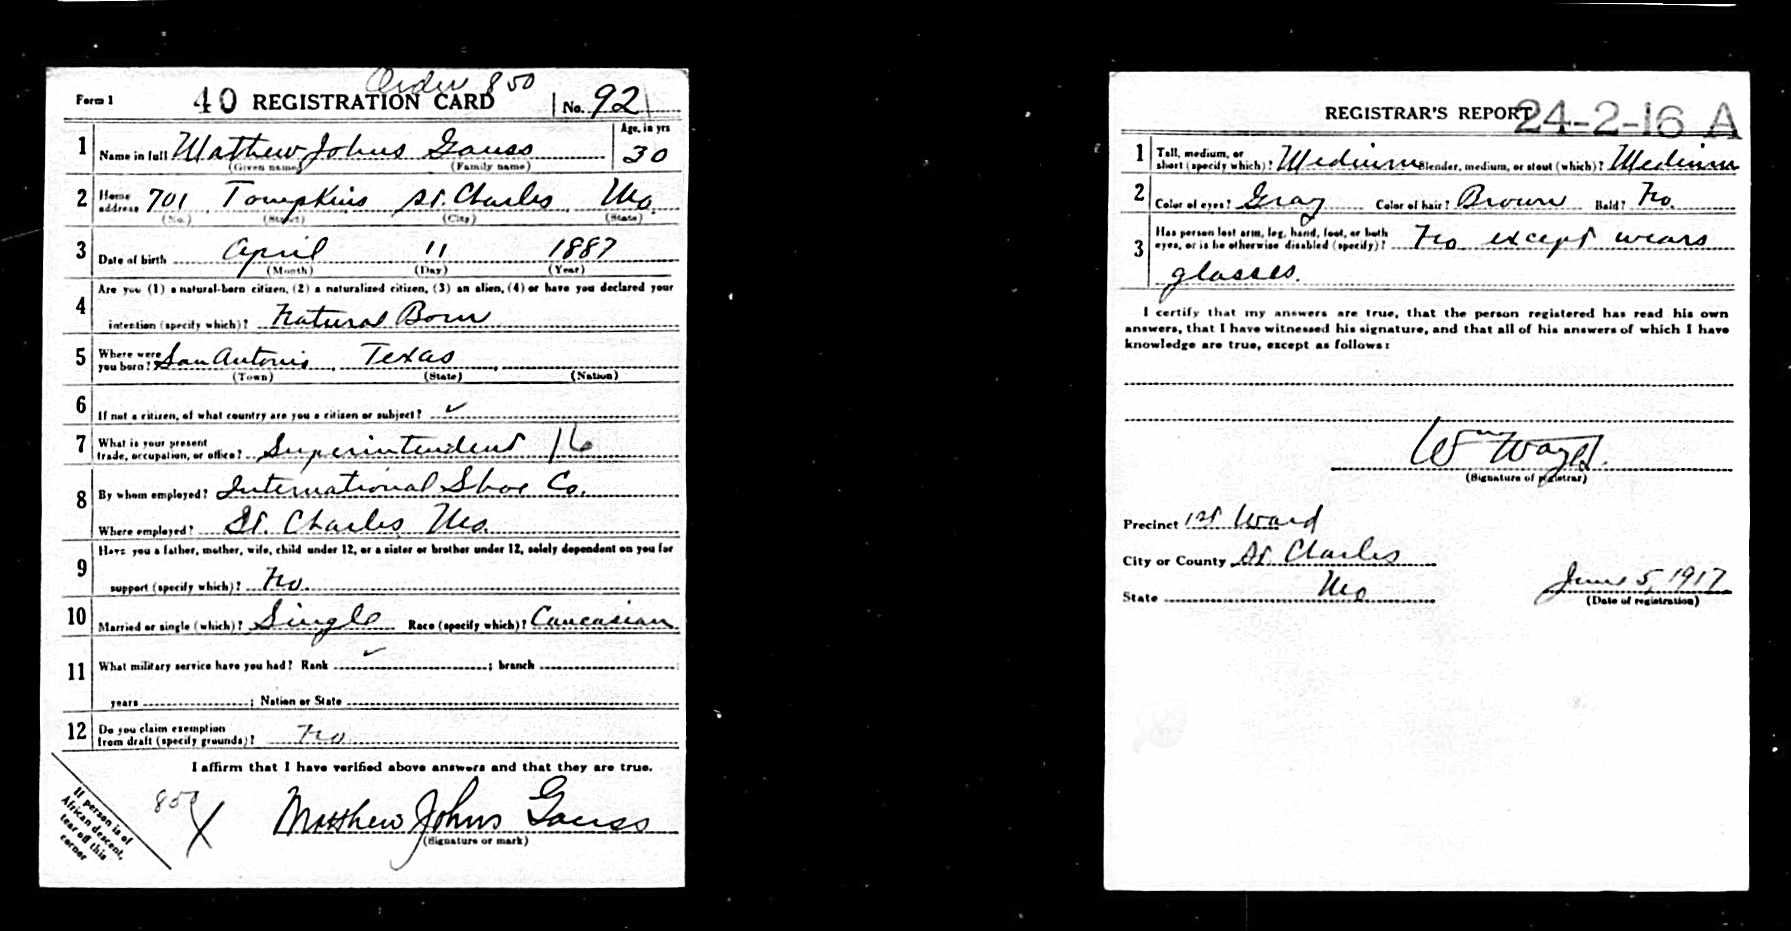 Order 850
Form 1 40 REGISTRATION CARD No. 92
1 Name in full Mathew Johns Gauss Age, in yrs 30
(Given name) (Family name)
2 Home address 701 Tompkins St. Charles Mo.
(No.) (Street) (City) (State)
3 Date of birth April 11 1887
(Month) (Day) (Year)
4 Are you (1) a natural-born citizen, (2) a naturalized citizen, (3) an alien, (4) or have you declared your
intention (specify which)? Natural Born
5 Where were you born? San Antonio, Texas
(Town) (State) (Nation)
6 If not a citizen, of what country are you a citizen or subject? ✓
7 What is your present trade, occupation, or office? Superintendent 16
8 By whom employed? International Shoe Co.
Where employed? St. Charles, Mo.
9 Have you a father, mother, wife, child under 12, or a sister or brother under 12, solely dependent on you for
support (specify which)? No
10 Married or single (which)? Single Race (specify which)? Caucasian
11 What military service have you had? Rank ✓ ; branch
years ; Nation or State
12 Do you claim exemption from draft (specify grounds)? No
I affirm that I have verified above answers and that they are true.
850 X Matthew Johns Gauss
(Signature or mark)
If person is of
African descent,
tear off this
corner
REGISTRAR'S REPORT 24-2-16 A
1 Tall, medium, or short (specify which)? Medium Slender, medium, or stout (which)? Medium
2 Color of eyes? Gray Color of hair? Brown Bald? No.
3 Has person lost arm, leg, hand, foot, or both eyes, or is he otherwise disabled (specify)? No except wears
glasses.
I certify that my answers are true, that the person registered has read his own
answers, that I have witnessed his signature, and that all of his answers of which I have
knowledge are true, except as follows:
Wm
(Signature of registrar)
Precinct 1st Ward
City or County St. Charles
State Mo June 5, 1917
(Date of registration)